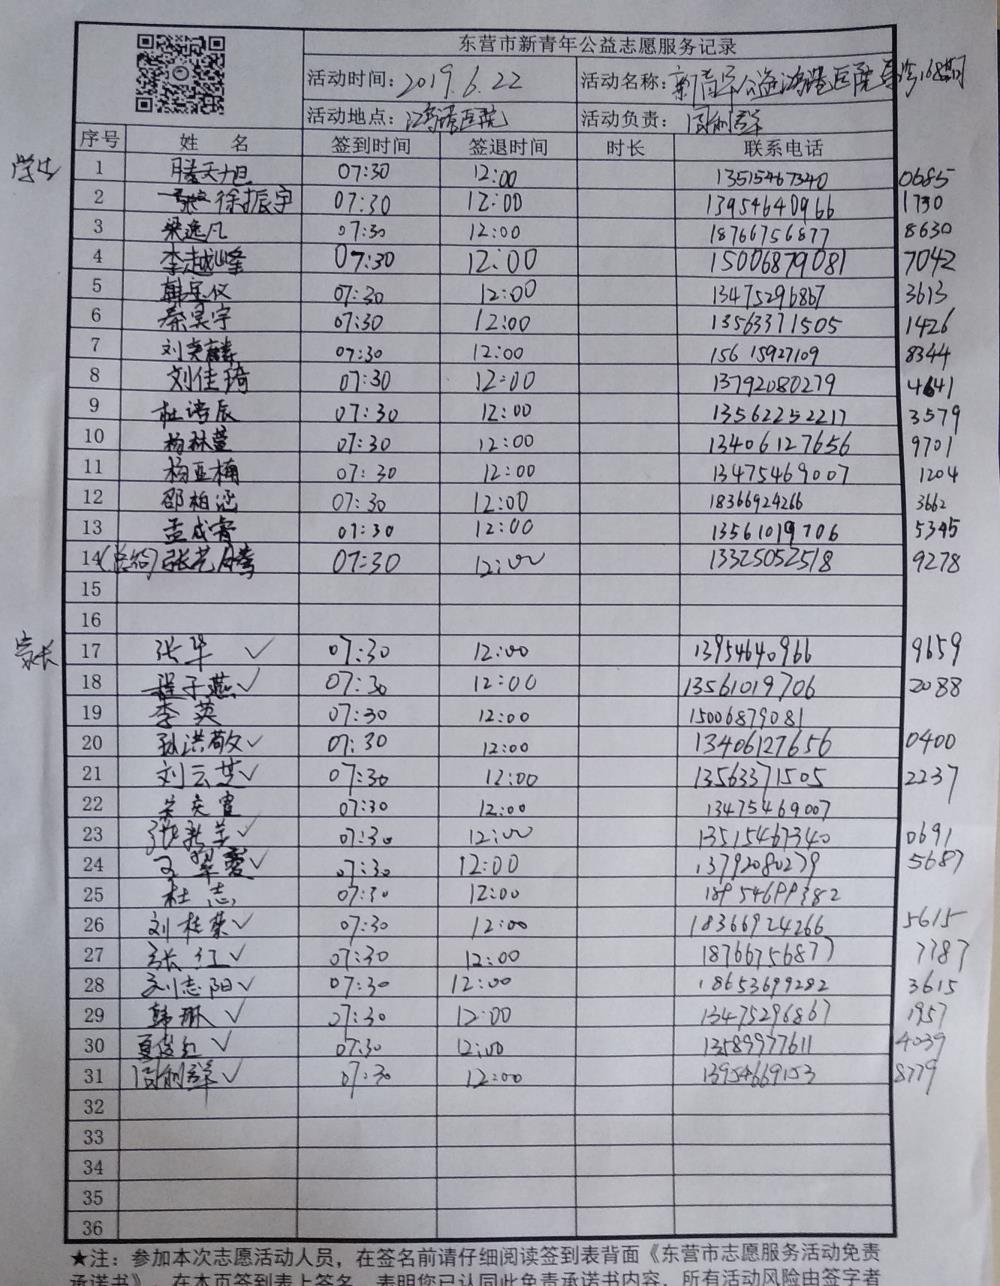 东营市新青年公益志愿服务记录
活动时间：2019.6.22 活动名称：新青年公益鸿港医院导诊168期
活动地点：鸿港医院 活动负责：周利群
序号 姓名 签到时间 签退时间 时长 联系电话
学生 1 滕天旭 07:30 12:00 13515467340 0685
2 徐振宇 07:30 12:00 13954640966 1730
3 梁逸凡 07:30 12:00 18766756877 8630
4 李越峰 07:30 12:00 15006879081 7042
5 韩宝仪 07:30 12:00 13475296867 3613
6 秦昊宇 07:30 12:00 13563371505 1426
7 刘奕麟 07:30 12:00 15615927109 8344
8 刘佳琦 07:30 12:00 13792080279 4641
9 杜诗辰 07:30 12:00 13562252217 3579
10 杨林萱 07:30 12:00 13406127656 9701
11 杨亚楠 07:30 12:00 13475469007 1204
12 邵柏涵 07:30 12:00 18366924266 3662
13 孟成睿 07:30 12:00 13561019706 5345
14 张艺腾 07:30 12:00 13325052518 9278
15
16
家长 17 张华 ✓ 07:30 12:00 13954640966 9659
18 程子燕 ✓ 07:30 12:00 13561019706 2088
19 李英 07:30 12:00 15006879081
20 孙洪敬 ✓ 07:30 12:00 13406127656 0400
21 刘云芝 ✓ 07:30 12:00 13563371505 2237
22 07:30 12:00 13475469007
23 张新兰 ✓ 07:30 12:00 13515467340 0691
24 王翠霞 ✓ 07:30 12:00 13792080279 5687
25 杜志 07:30 12:00 18954699382
26 刘桂荣 ✓ 07:30 12:00 18366924266 5615
27 张红 ✓ 07:30 12:00 18766756877 7787
28 刘志阳 ✓ 07:30 12:00 18653699282 3615
29 韩琳 ✓ 07:30 12:00 13475296867 1957
30 夏俊红 ✓ 07:30 12:00 13589977611 4039
31 周利群 ✓ 07:30 12:00 13954669153 8779
32
33
34
35
36
★注：参加本次志愿活动人员，在签名前请仔细阅读签到表背面《东营市志愿服务活动免责
承诺书》，在本页签到表上签名，表明您已认同此免责承诺书内容，所有活动风险由签字者